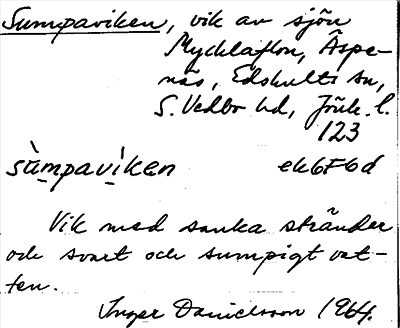 Sumpaviken, vik av sjön
Mycklaflon, Äspe-
näs, Edshults sn,
S. Vedbo hd, Jönk. l.
123
sùmpavìken ek6F6d
Vik med sanka stränder
och svart och sumpigt vat-
ten.
Inger Danielsson 1964.